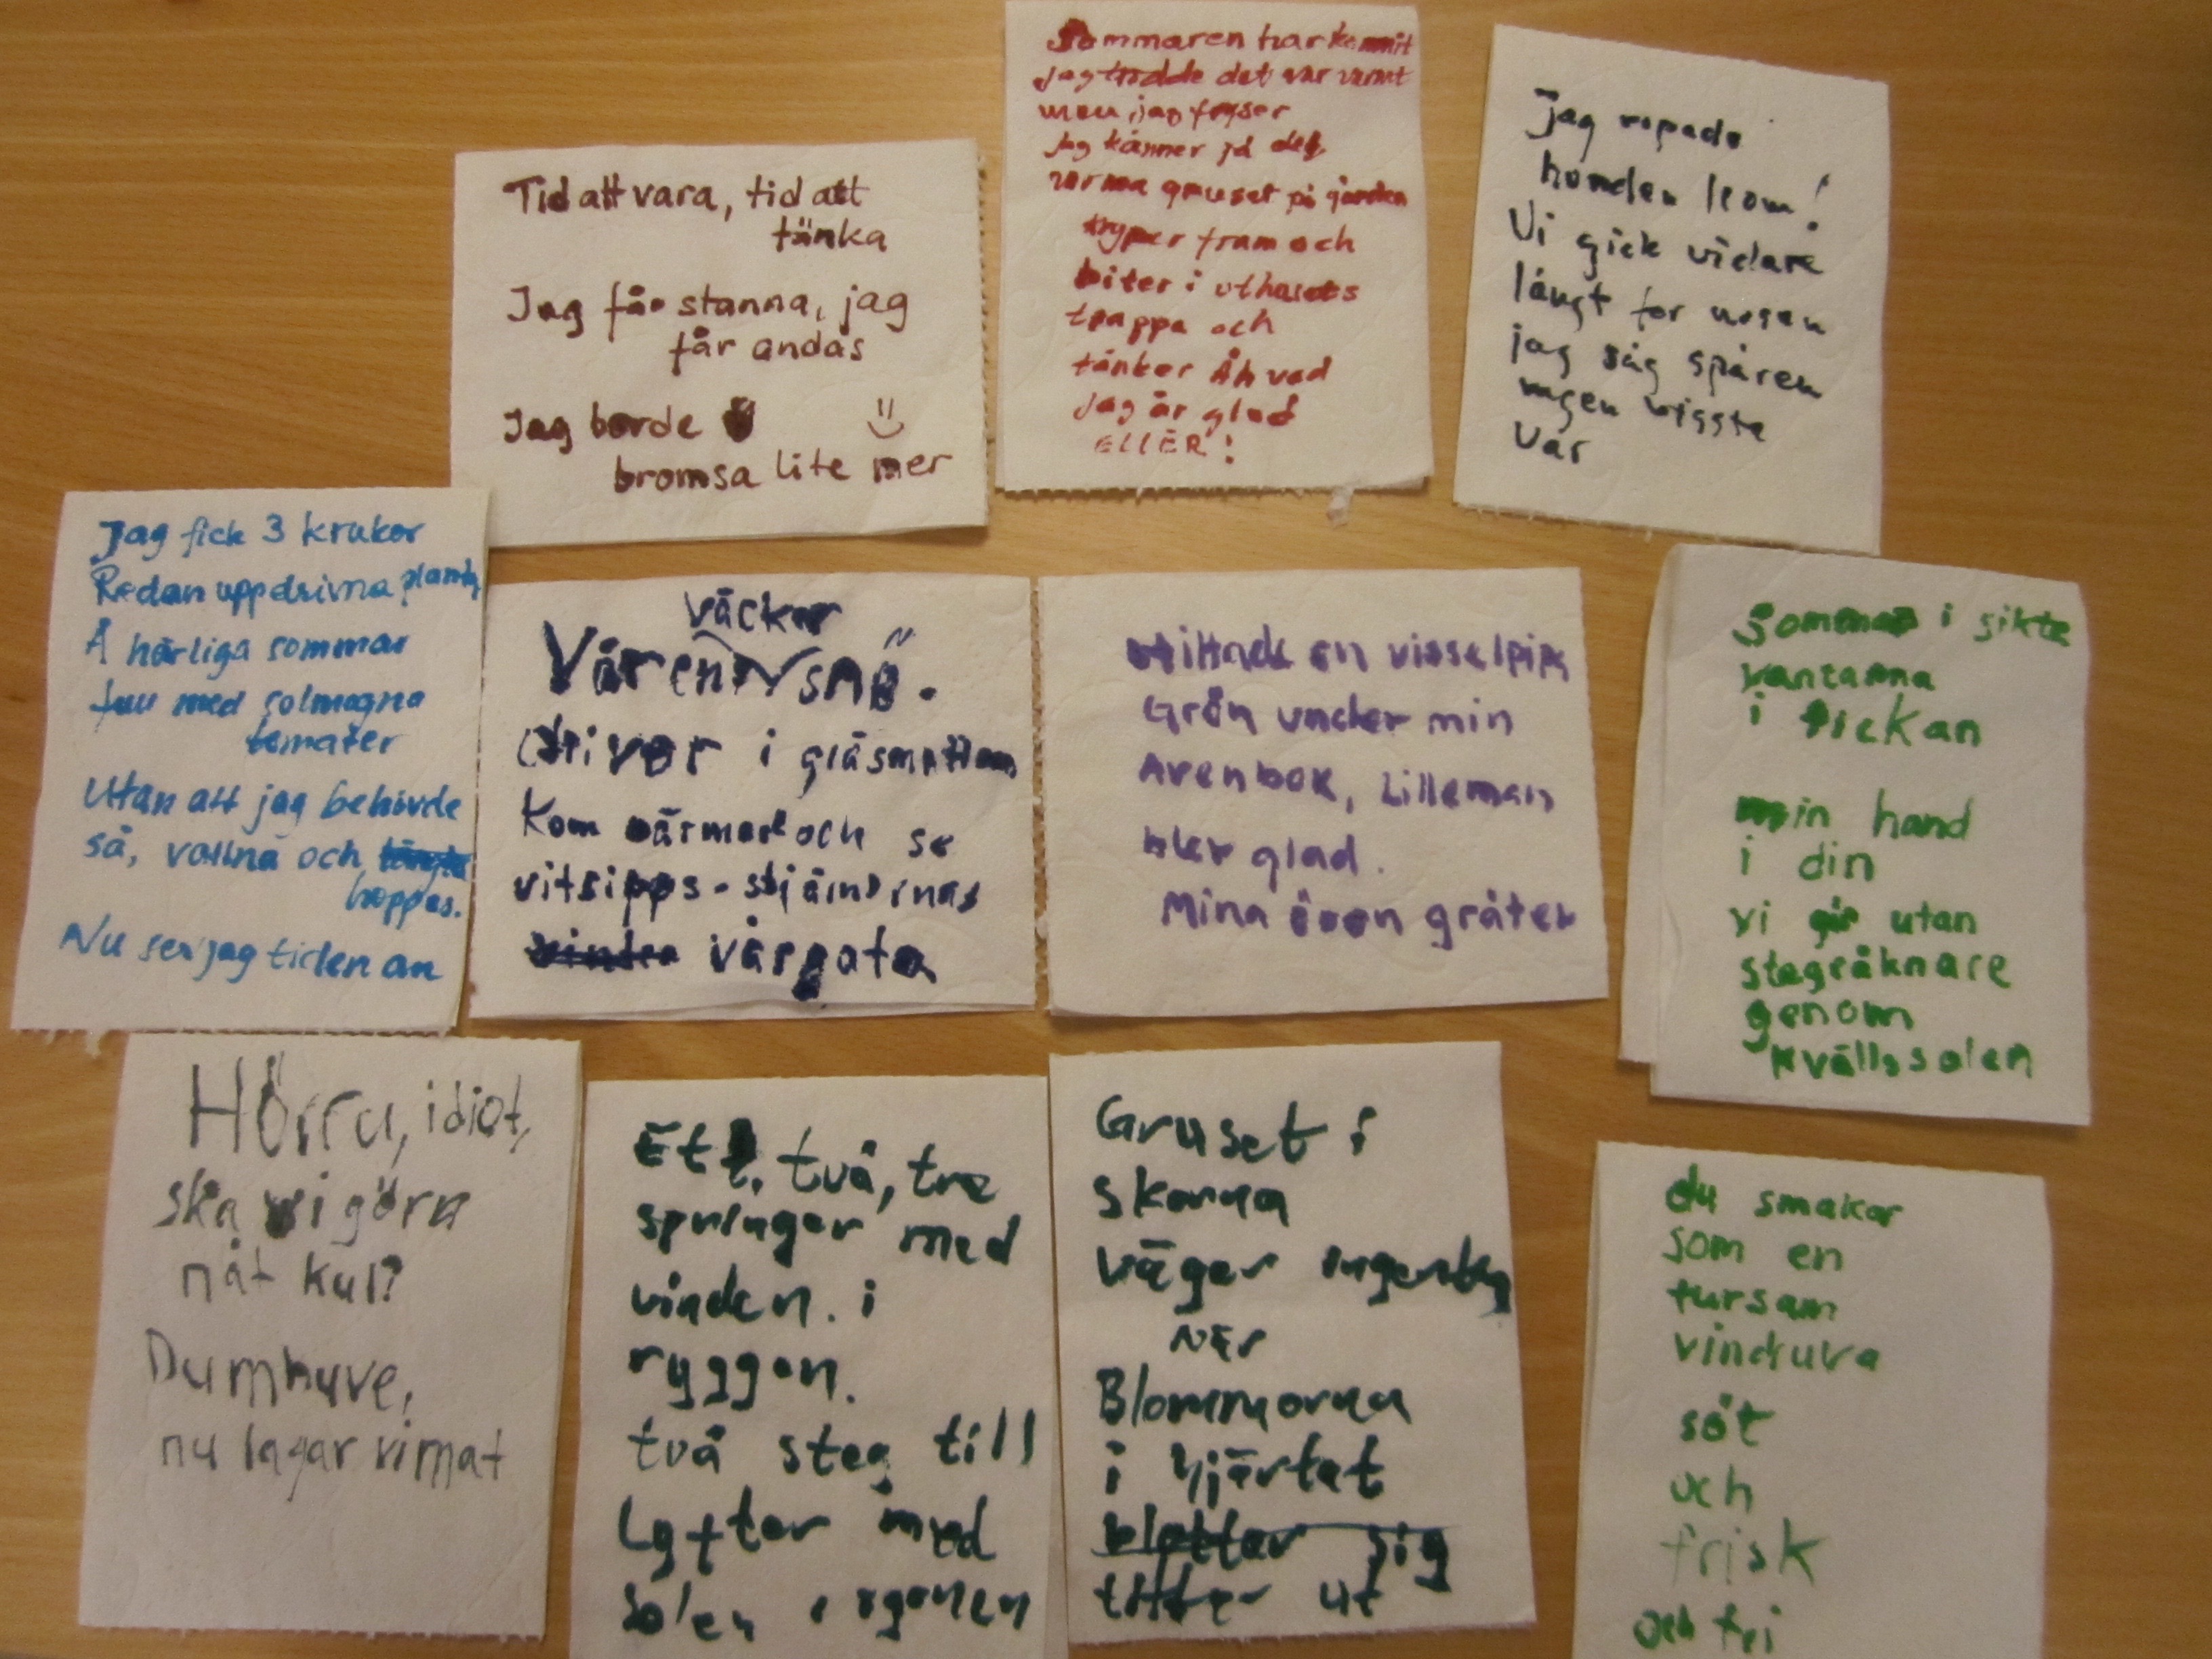 Tid att vara, tid att
tänka
Jag får stanna, jag
får andas
Jag borde
bromsa lite mer
Sommaren har kommit
jag trodde det var varmt
men jag fryser
Jag känner på det
varma gruset på gården
kryper fram och
biter i uthusets
trappa och
tänker Åh vad
jag är glad
ELLER!
Jag ropade
hunden kom!
Vi gick vidare
långt for nosen
jag såg spåren
ingen visste
var
Jag fick 3 krukor
Redan uppdrivna
Å härliga sommar
med solmogna
tomater
Utan att jag behövde
så, vattna och
hoppas.
Nu ser jag tiden an
väcker
Våren snö.
driver i gräsmattan
Kom närmare och se
vitsipps-stjärnornas
vårgata
Hittade en visselpipa
Grön under min
Avenbok, Lilleman
blev glad.
Mina öron gråter
Sommar i sikte
vantarna
i fickan
min hand
i din
vi går utan
stegräknare
genom
kvällssolen
Hörru, idiot,
ska vi göra
nåt kul?
Dumhuve,
nu lagar vi mat
Ett, två, tre
springer med
vinden. i
ryggen.
två steg till
Lyfter med
solen i ögonen
Gruset i
skorna
väger ingenting
När
Blommorna
i hjärtat
sig
tittar ut
du smakar
som en
tursam
vindruva
söt
och
frisk
och fri